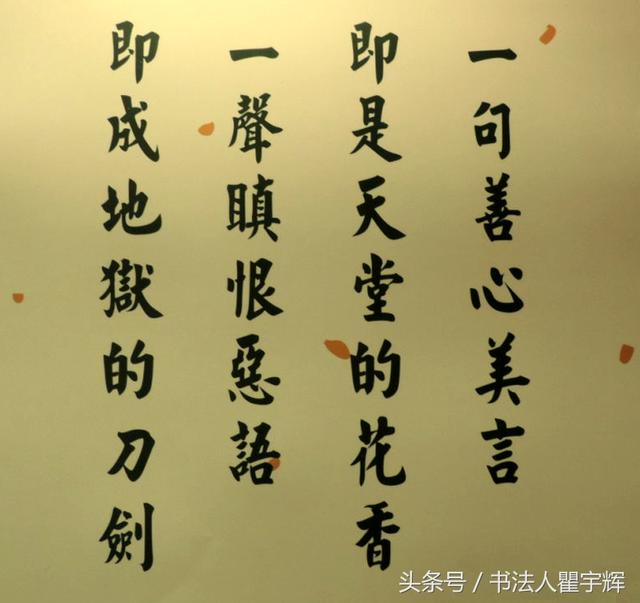 一句善心美言
即是天堂的花香
一聲瞋恨惡語
即成地獄的刀劍
头条号／书法人瞿宇辉